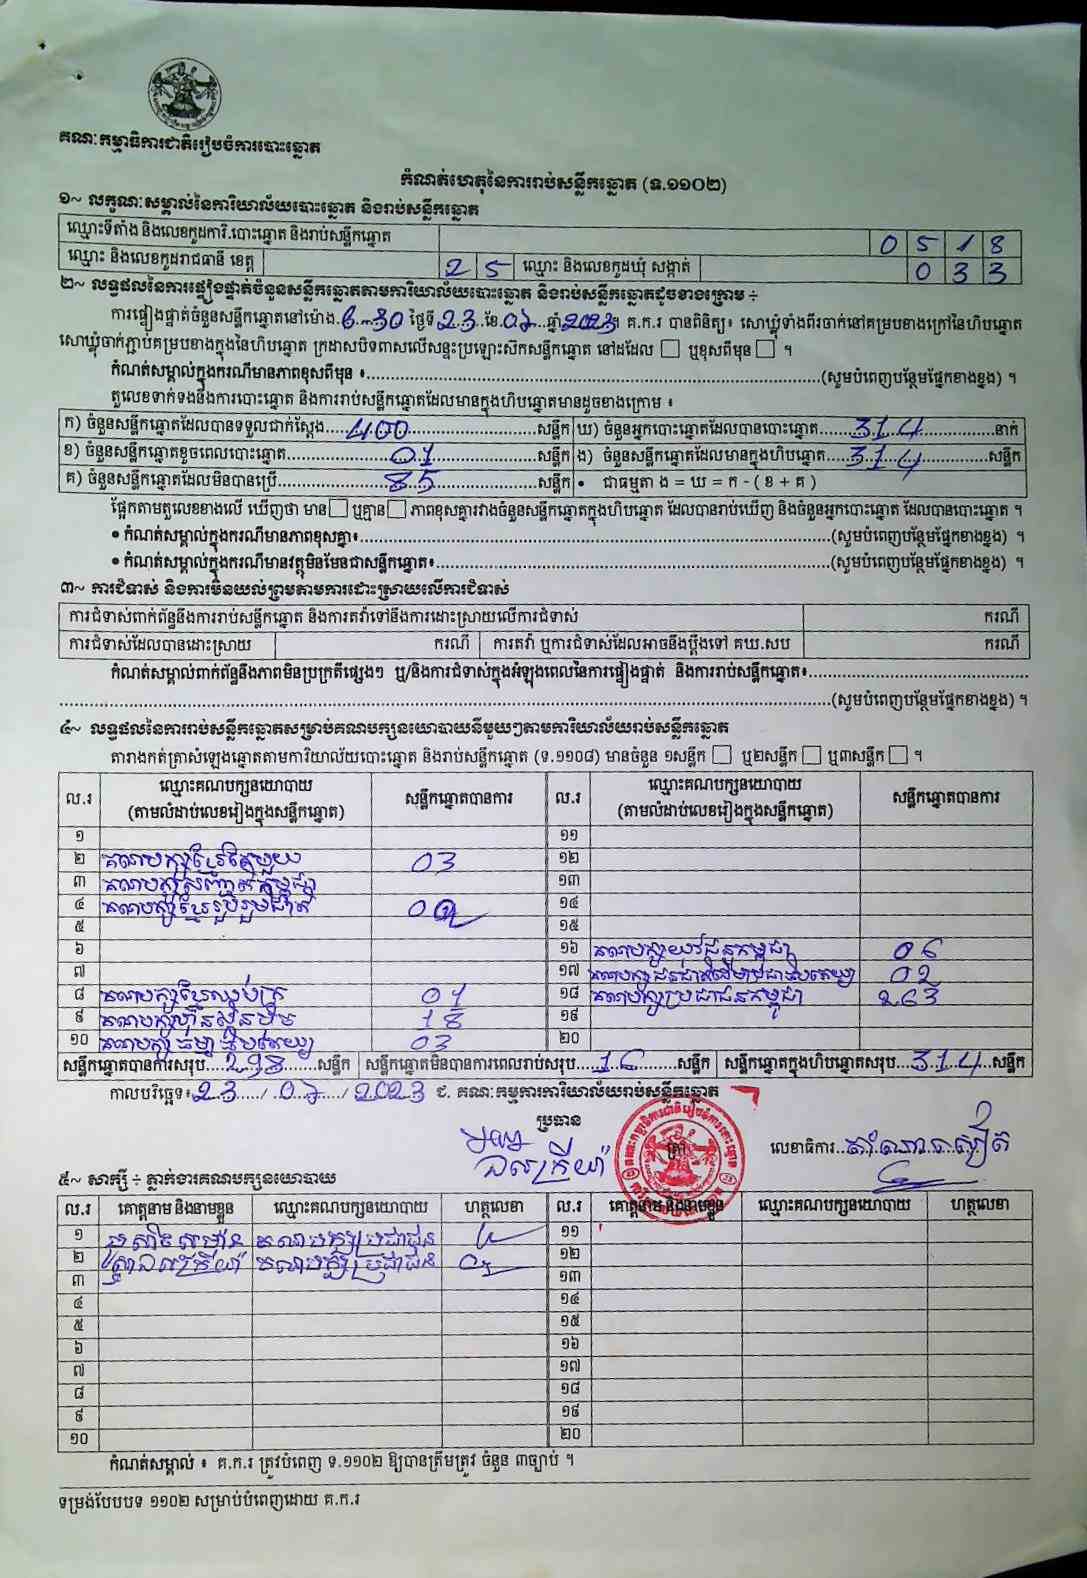 គណៈកម្មាធិការជាតិរៀបចំការបោះឆ្នោត
កំណត់ហេតុនៃការរាប់សន្លឹកឆ្នោត (ទ.១១០២)
១~ លក្ខណៈសម្គាល់នៃការិយាល័យបោះឆ្នោត និងរាប់សន្លឹកឆ្នោត
ឈ្មោះទីតាំង និងលេខកូដការិ.បោះឆ្នោត និងរាប់សន្លឹកឆ្នោត 0 5 1 8
ឈ្មោះ និងលេខកូដរាជធានី ខេត្ត 2 5 ឈ្មោះ និងលេខកូដឃុំ សង្កាត់ 0 3 3
២~ លទ្ធផលនៃការផ្ទៀងផ្ទាត់ចំនួនសន្លឹកឆ្នោតតាមការិយាល័យបោះឆ្នោត និងរាប់សន្លឹកឆ្នោតដូចខាងក្រោម ÷
ការផ្ទៀងផ្ទាត់ចំនួនសន្លឹកឆ្នោតនៅម៉ោង ថ្ងៃទី 23 ខែ ឆ្នាំ 2023។ គ.ក.រ បានពិនិត្យ៖ សោឃ្លុំទាំងពីរចាក់នៅគម្របខាងក្រៅនៃហិបឆ្នោត
សោឃ្លុំចាក់ភ្ជាប់គម្របខាងក្នុងនៃហិបឆ្នោត ក្រដាសបិទពាសលើសន្ទះប្រឡោះស៊កសន្លឹកឆ្នោត នៅដដែល □ ឬខុសពីមុន □ ។
កំណត់សម្គាល់ក្នុងករណីមានភាពខុសពីមុន ៖ (សូមបំពេញបន្ថែមផ្នែកខាងខ្នង) ។
តួលេខទាក់ទងនឹងការបោះឆ្នោត និងការរាប់សន្លឹកឆ្នោតដែលមានក្នុងហិបឆ្នោតមានដូចខាងក្រោម ៖
ក) ចំនួនសន្លឹកឆ្នោតដែលបានទទួលជាក់ស្តែង 400 សន្លឹក ឃ) ចំនួនអ្នកបោះឆ្នោតដែលបានបោះឆ្នោត 314 នាក់
ខ) ចំនួនសន្លឹកឆ្នោតខូចពេលបោះឆ្នោត 01 សន្លឹក ង) ចំនួនសន្លឹកឆ្នោតដែលមានក្នុងហិបឆ្នោត 314 សន្លឹក
គ) ចំនួនសន្លឹកឆ្នោតដែលមិនបានប្រើ 85 សន្លឹក • ជាធម្មតា ង = ឃ = ក - ( ខ + គ )
ផ្អែកតាមតួលេខខាងលើ ឃើញថា មាន □ ឬគ្មាន □ ភាពខុសគ្នារវាងចំនួនសន្លឹកឆ្នោតក្នុងហិបឆ្នោត ដែលបានរាប់ឃើញ និងចំនួនអ្នកបោះឆ្នោត ដែលបានបោះឆ្នោត ។
• កំណត់សម្គាល់ក្នុងករណីមានភាពខុសគ្នា៖ (សូមបំពេញបន្ថែមផ្នែកខាងខ្នង) ។
• កំណត់សម្គាល់ក្នុងករណីមានវត្ថុមិនមែនជាសន្លឹកឆ្នោត៖ (សូមបំពេញបន្ថែមផ្នែកខាងខ្នង) ។
៣~ ការជំទាស់ និងការមិនយល់ព្រមតាមការដោះស្រាយលើការជំទាស់
ការជំទាស់ពាក់ព័ន្ធនឹងការរាប់សន្លឹកឆ្នោត និងការតវ៉ាទៅនឹងការដោះស្រាយលើការជំទាស់ ករណី
ការជំទាស់ដែលបានដោះស្រាយ ករណី ការតវ៉ា ឬការជំទាស់ដែលអាចនឹងប្តឹងទៅ គឃ.សប ករណី
កំណត់សម្គាល់ពាក់ព័ន្ធនឹងភាពមិនប្រក្រតីផ្សេងៗ ឬ/និងការជំទាស់ក្នុងអំឡុងពេលនៃការផ្ទៀងផ្ទាត់ និងការរាប់សន្លឹកឆ្នោត៖
(សូមបំពេញបន្ថែមផ្នែកខាងខ្នង) ។
៤~ លទ្ធផលនៃការរាប់សន្លឹកឆ្នោតសម្រាប់គណបក្សនយោបាយនីមួយៗតាមការិយាល័យរាប់សន្លឹកឆ្នោត
តារាងកត់ត្រាសំឡេងឆ្នោតតាមការិយាល័យបោះឆ្នោត និងរាប់សន្លឹកឆ្នោត (ទ.១១០៨) មានចំនួន ១សន្លឹក □ ឬ២សន្លឹក □ ឬ៣សន្លឹក □ ។
ល.រ ឈ្មោះគណបក្សនយោបាយ (តាមលំដាប់លេខរៀងក្នុងសន្លឹកឆ្នោត) សន្លឹកឆ្នោតបានការ ល.រ ឈ្មោះគណបក្សនយោបាយ (តាមលំដាប់លេខរៀងក្នុងសន្លឹកឆ្នោត) សន្លឹកឆ្នោតបានការ
១ ១១
២ គណបក្សខ្មែរតែមួយ 03 ១២
៣ ១៣
៤ គណបក្សខ្មែររួបរួមជាតិ ១៤
៥ ១៥
៦ ១៦ គណបក្សយុវជនកម្ពុជា 06
៧ ១៧ 02
៨ គណបក្សខ្មែរឈប់ក្រ 01 ១៨ គណបក្សប្រជាជនកម្ពុជា 263
៩ គណបក្សហ្វ៊ុនស៊ិនប៉ិច 18 ១៩
១០ គណបក្សធម្មាធិបតេយ្យ 03 ២០
សន្លឹកឆ្នោតបានការសរុប 298 សន្លឹក សន្លឹកឆ្នោតមិនបានការពេលរាប់សរុប 16 សន្លឹក សន្លឹកឆ្នោតក្នុងហិបឆ្នោតសរុប 314 សន្លឹក
កាលបរិច្ឆេទ៖ 23 / / 2023 ជ. គណៈកម្មការការិយាល័យរាប់សន្លឹកឆ្នោត
ប្រធាន
លេខាធិការ
៥~ សាក្សី ÷ ភ្នាក់ងារគណបក្សនយោបាយ
ល.រ គោត្តនាម និងនាមខ្លួន ឈ្មោះគណបក្សនយោបាយ ហត្ថលេខា ល.រ គោត្តនាម និងនាមខ្លួន ឈ្មោះគណបក្សនយោបាយ ហត្ថលេខា
១ គណបក្សប្រជាជន ១១
២ គណបក្សប្រជាជន ១២
៣ ១៣
៤ ១៤
៥ ១៥
៦ ១៦
៧ ១៧
៨ ១៨
៩ ១៩
១០ ២០
កំណត់សម្គាល់ ៖ គ.ក.រ ត្រូវបំពេញ ទ.១១០២ ឱ្យបានត្រឹមត្រូវ ចំនួន ៣ច្បាប់ ។
ទម្រង់បែបបទ ១១០២ សម្រាប់បំពេញដោយ គ.ក.រ